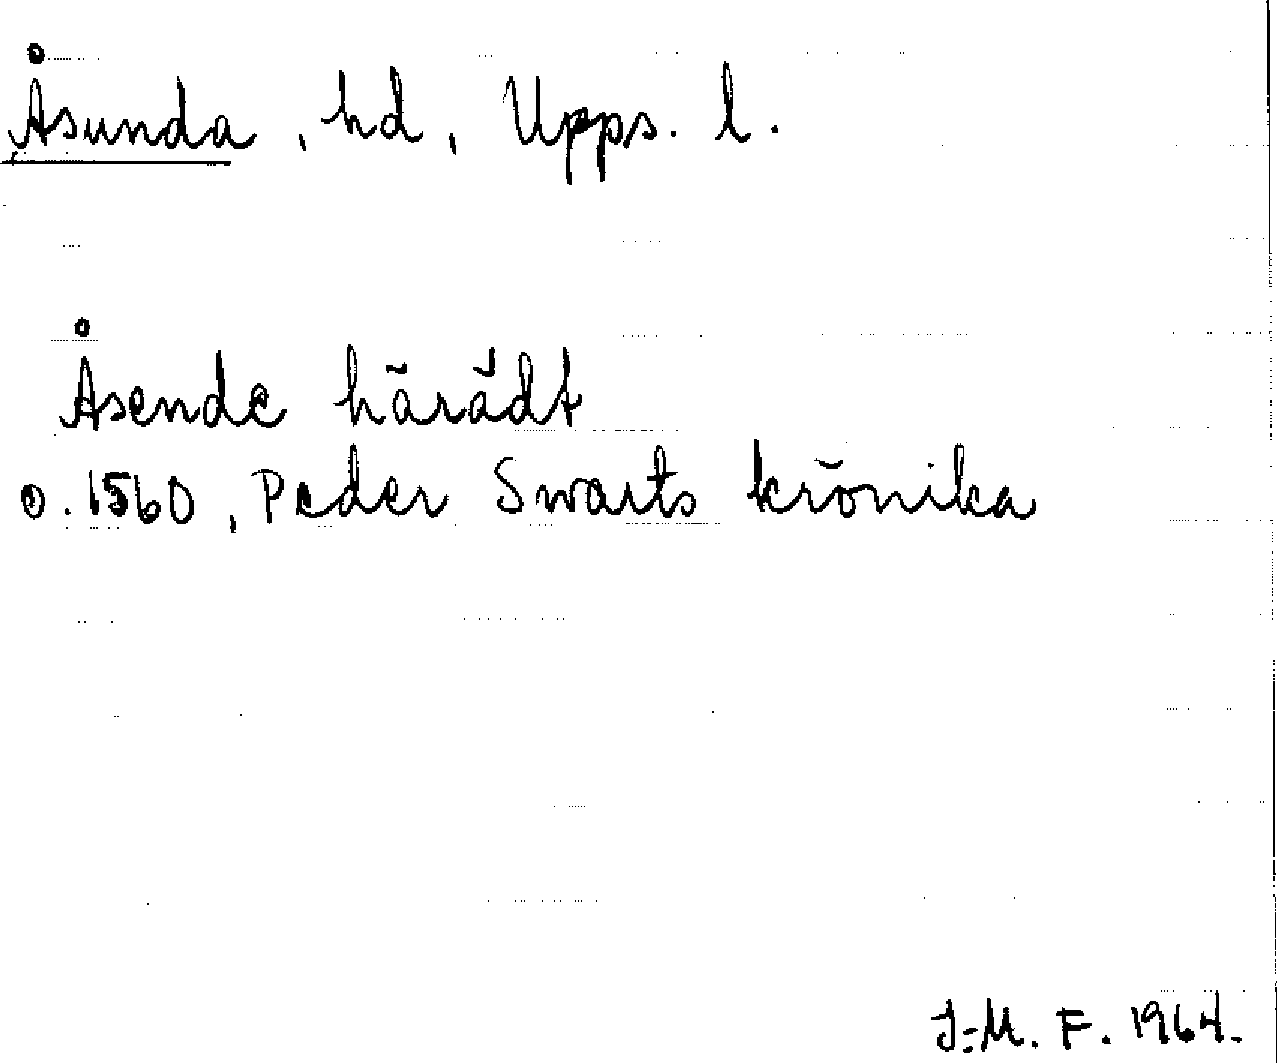 Åsunda, hd, Upps. l.
Åsende härädt
o. 1560, Peder Swarts krönika
J-M. F. 1964.